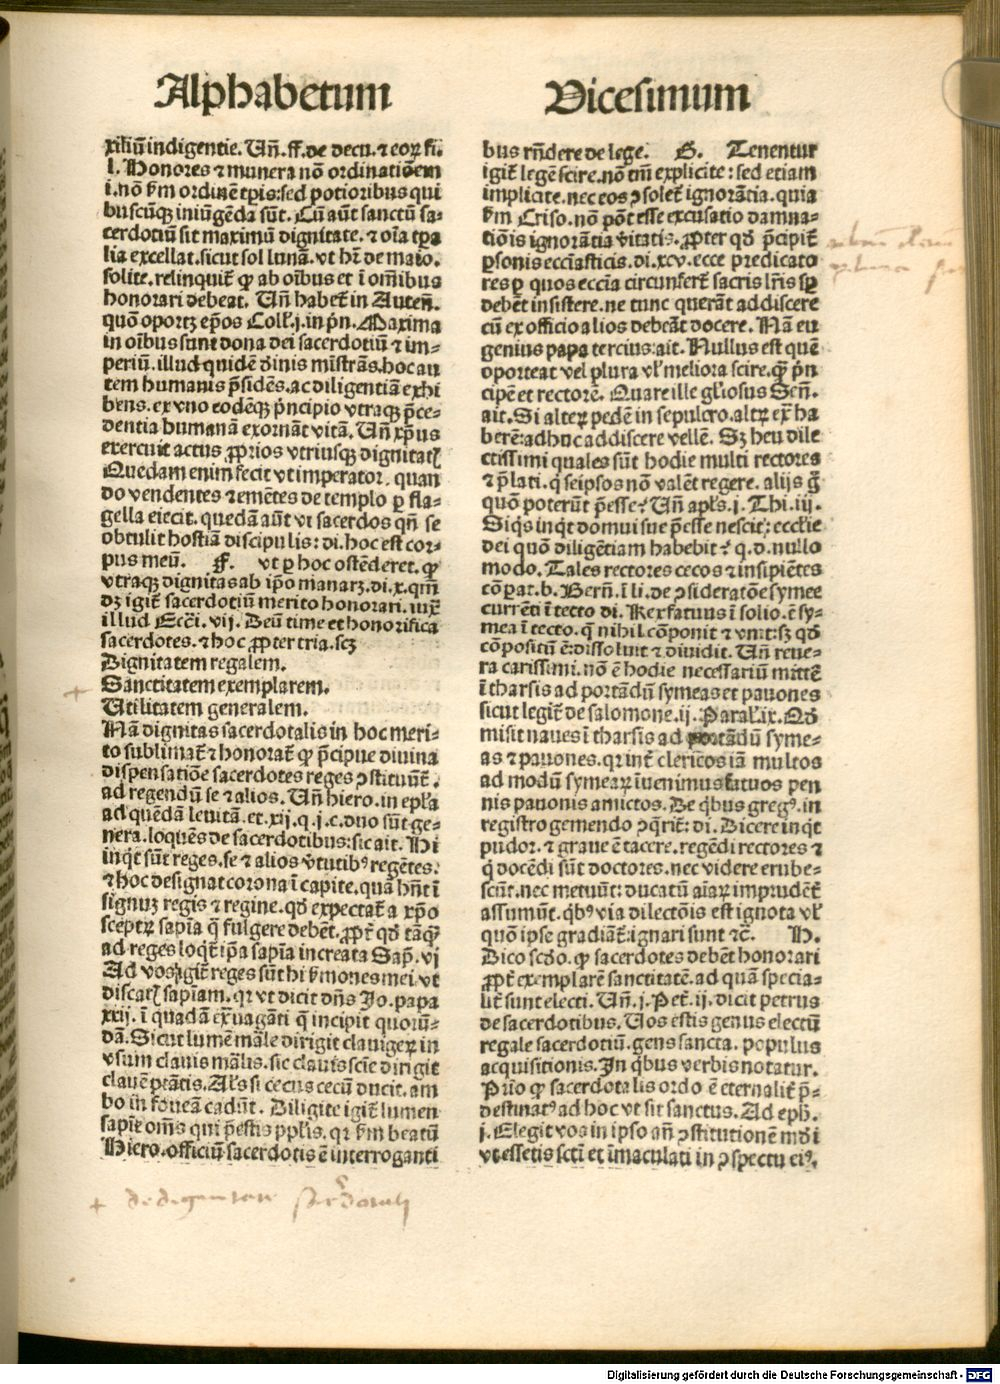 Alphabetum
Vicesimum
xiliū indigentie. Uñ. ff. de decu. ⁊ eoꝝ fi.
l. Honores ⁊ munera nō ordinatiōem
i. nō ẜm ordinē tp̄is: sed potioribus qui
buscūqꝫ iniūgēda sūt. Cū aūt sanctū sa⸗
cerdotiū sit maximū dignitate. ⁊ oīa tꝑa
lia excellat. sicut sol lunā. vt hr̄ de maio.
solite. relinquit̄ ꝙ ab oībus et ī om̄ibus
honorari debeat. Uñ habet̄ in Auteñ.
quō oportꝫ ep̄os Coll'. j. in pñ. Maxima
in oībus sunt dona dei sacerdotiū ⁊ im⸗
periū. illud quidē diuinis mīstrās. hoc au
tem humanis p̄sidēs. ac diligentiā exhi
bens. ex vno eodēqꝫ pṙncipio vtraqꝫ p̄ce⸗
dentia humanā exornāt vitā. Uñ xp̄us
exercuit actus ꝓprios vtriusqꝫ dignitatꝭ
Quedam enim fecit vt imperator. quan
do vendentes ⁊ emētes de templo ꝑ fla⸗
gella eiecit. quedā aūt vt sacerdos qñ se
obtulit hostiā discipulis: di. hoc est cor⸗
pus meū. F. vt ꝑ hoc ostēderet. ꝙ
vtraqꝫ dignitas ab ip̄o manarꝫ. di. x. qm̄
dꝫ igit̄ sacerdotiū merito honorari. iuxͭ
illud Ecci. vij. Deū time et honorifica
sacerdotes. ⁊ hoc ꝓpter tria. scꝫ
Dignitatem regalem.
Sanctitatem exemplarem.
Utilitatem generalem.
Nā dignitas sacerdotalis in hoc meri⸗
to sublimat̄ ⁊ honorat̄ ꝙ p̄cipue diuina
dispensatiōe sacerdotes reges ꝯstituūt̄.
ad regendū se ⁊ alios. Uñ hiero. in ep̄la
ad quēdā leuitā. et. xij. q. j. c. duo sūt ge⸗
nera. loquēs de sacerdotibus: sic ait. Hi
inqt̄ sūt reges. se ⁊ alios v̄tutibꝰ regētes.
⁊ hoc designat corona ī capite. quā hñt ī
signuꝫ regis ⁊ regine. qd̄ expectat̄ a xp̄o
sceptꝝ sapīa q̄ fulgere debēt. ꝓpt̄ qd̄ tāqꝫ
ad reges loqt̄ ip̄a sapīa increata Sap̄. vj
Ad vos igit̄ reges sūt hi ẜmones mei. vt
discatꝭ sapīam. qr vt dicit dñs Jo. papa
xxij. ī quadā exͭuagāti q̄ incipit quorū⸗
dā. Sicut lumē māle dirigit clauigeꝝ in
vsum clauis mālis. sic clauis sciēe dirigit
clauē ptātis. Al's si cecus cecū ducit. am
bo in foueā cadūt. Diligite igit̄ lumen
sapiē om̄s qui p̄estis ppl'is. qr ẜm beatū
Hiero. officiū sacerdotis ē interroganti
bus rñdere de lege. G. Tenentur
igit̄ legē scire. nō tm̄ explicite: sed etiam
implicite. nec eos ꝯsolet̄ ignorātia. quia
ẜm Criso. nō pōt esse excusatio damna⸗
tiōis ignorātia vitatis. ꝓpter qd̄ p̄cipit̄
ꝑsonis ecciasticis. di. xcv. ecce predicato
res ꝑ quos eccia circunfert̄ sacris lr̄is sꝑ
debēt insistere. ne tunc querāt addiscere
cū ex officio alios debeāt docere. Nā eu
genius papa tercius: ait. Nullus est quē
oporteat vel plura vl' meliora scire. ꝙ̄ pṙn
cipē et rectorē. Quare ille gl'iosus Señ.
ait. Si alteꝝ pedē in sepulcro. altꝝ exͭ ha
berē: adhuc addiscere vellē. Sꝫ heu dile
ctissimi quales sūt hodie multi rectores
⁊ p̄lati. q̇ seipsos nō valēt regere. alijs q̄
quō poterūt p̄esse? Uñ apl's. j. Thi. iij.
Siq̇s inqt̄ domui sue p̄esse nescit: eccl'ie
dei quō diligētiam habebit? q. d. nullo
modo. Tales rectores cecos ⁊ insipiētes
cōꝑat. b. Berñ. ī li. de ꝯsideratōe symee
currēti ī tecto di. Rex fatuus ī solio. ē sy⸗
mea ī tecto. q̄ nihil cōponit ⁊ vnit: sꝫ qd̄
cōpositū ē: dissoluit ⁊ diuidit. Uñ reue⸗
ra carissimi. nō ē hodie necessariū mittē
ī tharsis ad portādū symeas et pauones
sicut legit̄ de salomone. ij. Paral'. ix. Qd̄
misit naues ī tharsis ad portādū syme⸗
as ⁊ pauones. qr int̄ clericos iā multos
ad modū symeaꝝ īuenimus fatuos pen
nis pauonis amictos. De q̇bus gregꝰ. in
registro gemendo ꝯqrit̄: di. Dicere inqt̄
pudor. ⁊ graue ē tacere. regēdi rectores ⁊
q̇ docēdi sūt doctores. nec videre erube⸗
scūt. nec metuūt: ducatū aīaꝝ imprudēt̄
assumūt. qbꝰ via dilectōis est ignota vl'
quō ipse gradiāt̄: ignari sunt ⁊c̄. H.
Dico scd̄o. ꝙ sacerdotes debēt honorari
ꝓpt̄ exemplarē sanctitatē. ad quā specia⸗
lit̄ sunt electi. Uñ. j. Pet̄. ij. dicit petrus
de sacerdotibus. Uos estis genus electū
regale sacerdotiū. gens sancta. populus
acquisitionis. In q̇bus verbis notatur.
Prīo ꝙ sacerdotalis ordo ē eternalit̄ p̄⸗
destinatꝰ ad hoc vt sit sanctus. Ad eph̄.
j. Elegit vos in ipso añ ꝯstitutionē mūdi
vt essetis scti et īmaculati in ꝯspectu eiꝰ.
+ de dignitate sacerdotali